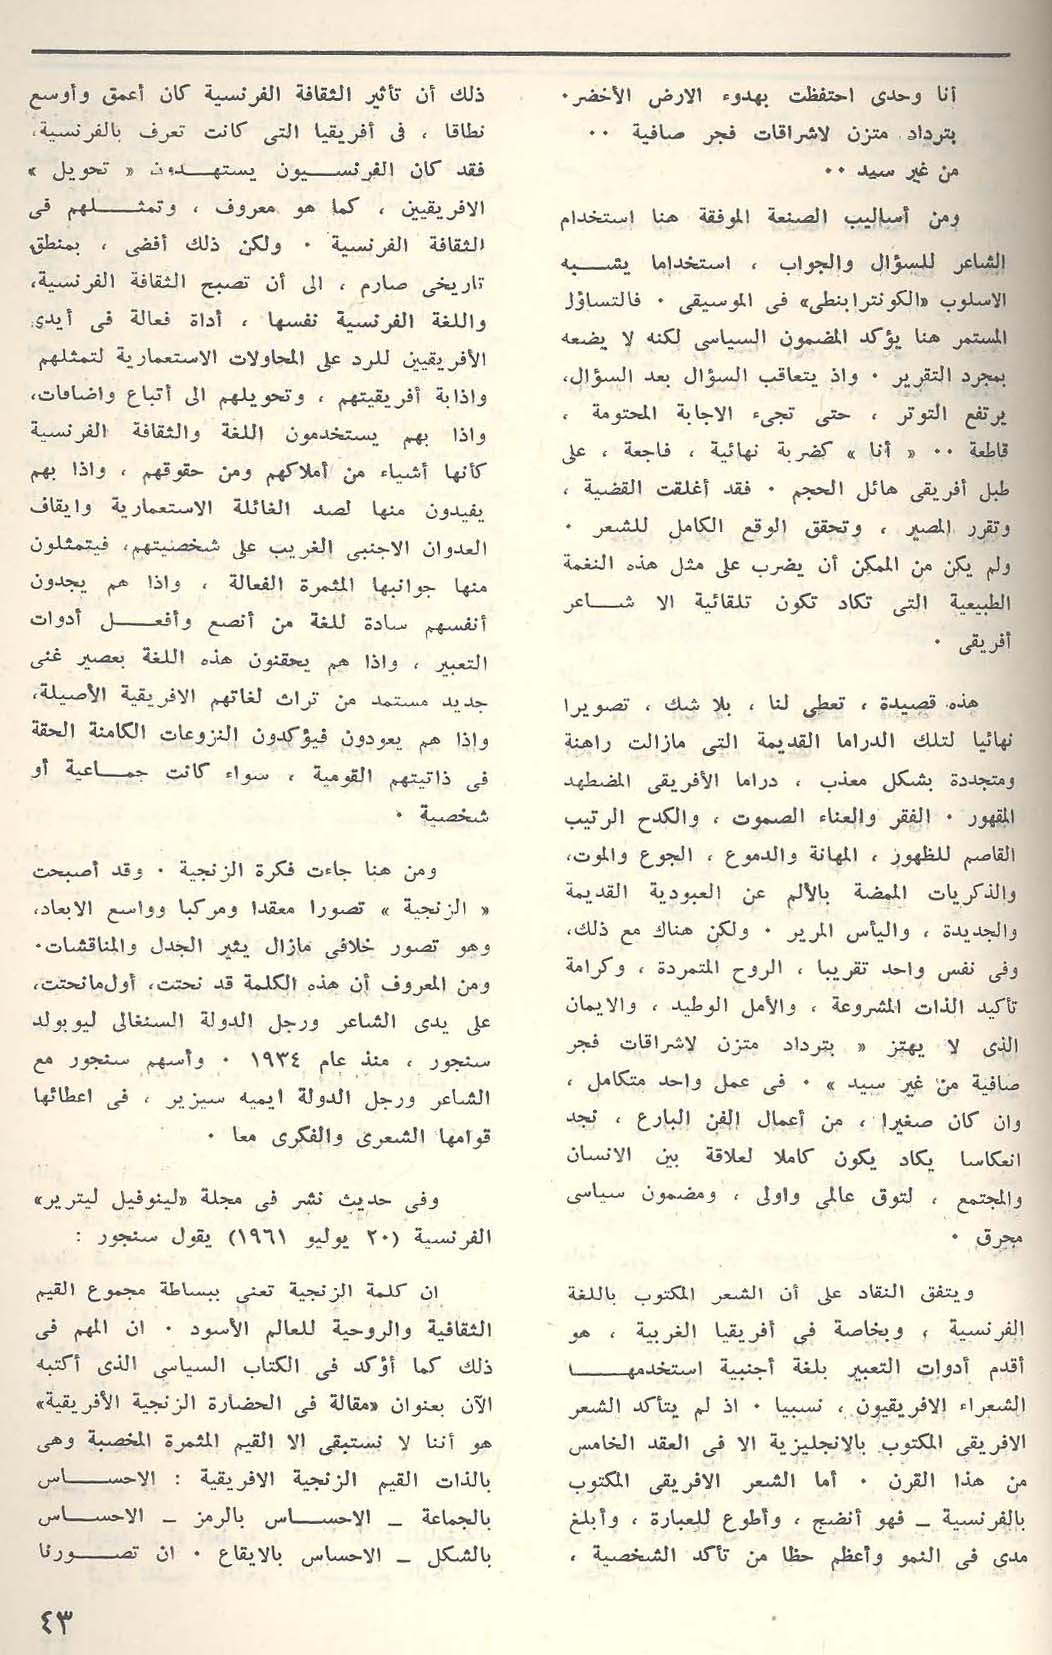 أنا وحدى احتفظت بهدوء الارض الأخضر ·
بترداد متزن لاشراقات فجر صافية ··
من غير سيد ··
ومن أساليب الصنعة الموفقة هنا استخدام
الشاعر للسؤال والجواب ، استخداما يشبه
الاسلوب «الكونترابنطى» فى الموسيقى · فالتساؤل
المستمر هنا يؤكد المضمون السياسى لكنه لا يضعه
بمجرد التقرير · واذ يتعاقب السؤال بعد السؤال،
يرتفع التوتر ، حتى تجىء الاجابة المحتومة ،
قاطعة ·· « أنا » كضربة نهائية ، فاجعة ، على
طبل أفريقى هائل الحجم · فقد أغلقت القضية ،
وتقرر المصير ، وتحقق الوقع الكامل للشعر ·
ولم يكن من الممكن أن يضرب على مثل هذه النغمة
الطبيعية التى تكاد تكون تلقائية الا شاعر
أفريقى ·
هذه قصيدة ، تعطى لنا ، بلا شك ، تصويرا
نهائيا لتلك الدراما القديمة التى مازالت راهنة
ومتجددة بشكل معذب ، دراما الأفريقى المضطهد
المقهور · الفقر والعناء الصموت ، والكدح الرتيب
القاصم للظهور ، المهانة والدموع ، الجوع والموت،
والذكريات الممضة بالألم عن العبودية القديمة
والجديدة ، واليأس المرير · ولكن هناك مع ذلك،
وفى نفس واحد تقريبا ، الروح المتمردة ، وكرامة
تأكيد الذات المشروعة ، والأمل الوطيد ، والايمان
الذى لا يهتز « بترداد متزن لاشراقات فجر
صافية من غير سيد » · فى عمل واحد متكامل ،
وان كان صغيرا ، من أعمال الفن البارع ، نجد
انعكاسا يكاد يكون كاملا لعلاقة بين الانسان
والمجتمع ، لتوق عالمى واولى ، ومضمون سياسى
محرق ·
ويتفق النقاد على أن الشعر المكتوب باللغة
الفرنسية ، وبخاصة فى أفريقيا الغربية ، هو
أقدم أدوات التعبير بلغة أجنبية استخدمها
الشعراء الافريقيون ، نسبيا · اذ لم يتأكد الشعر
الافريقى المكتوب بالانجليزية الا فى العقد الخامس
من هذا القرن · أما الشعر الافريقى المكتوب
بالفرنسية – فهو أنضج ، وأطوع للعبارة ، وأبلغ
مدى فى النمو وأعظم حظا من تأكد الشخصية ،
ذلك أن تأثير الثقافة الفرنسية كان أعمق وأوسع
نطاقا ، فى أفريقيا التى كانت تعرف بالفرنسية،
فقد كان الفرنسيون يستهدون « تحويل »
الافريقيين ، كما هو معروف ، وتمثلهم فى
الثقافة الفرنسية · ولكن ذلك أفضى ، بمنطق
تاريخى صارم ، الى أن تصبح الثقافة الفرنسية،
واللغة الفرنسية نفسها ، أداة فعالة فى أيدى
الأفريقيين للرد على المحاولات الاستعمارية لتمثلهم
واذابة أفريقيتهم ، وتحويلهم الى أتباع واضافات،
واذا بهم يستخدمون اللغة والثقافة الفرنسية
كأنها أشياء من أملاكهم ومن حقوقهم ، واذا بهم
يفيدون منها لصد الغائلة الاستعمارية وايقاف
العدوان الاجنبى الغريب على شخصيتهم، فيتمثلون
منها جوانبها المثمرة الفعالة ، واذا هم يجدون
أنفسهم سادة للغة من أنصع وأفعل أدوات
التعبير ، واذا هم يحقنون هذه اللغة بعصير غنى
جديد مستمد من تراث لغاتهم الافريقية الأصيلة،
واذا هم يعودون فيؤكدون النزوعات الكامنة الحقة
فى ذاتيتهم القومية ، سواء كانت جماعية أو
شخصية ·
ومن هنا جاءت فكرة الزنجية · وقد أصبحت
« الزنجية » تصورا معقدا ومركبا وواسع الابعاد،
وهو تصور خلافى مازال يثير الجدل والمناقشات·
ومن المعروف أن هذه الكلمة قد نحتت، أول مانحتت،
على يدى الشاعر ورجل الدولة السنغالى ليوبولد
سنجور ، منذ عام ١٩٣٤ · وأسهم سنجور مع
الشاعر ورجل الدولة ايميه سيزير ، فى اعطائها
قوامها الشعرى والفكرى معا ·
وفى حديث نشر فى مجلة «لينوفيل ليترير»
الفرنسية (٢٠ يوليو ١٩٦١) يقول سنجور :
ان كلمة الزنجية تعنى ببساطة مجموع القيم
الثقافية والروحية للعالم الأسود · ان المهم فى
ذلك كما أؤكد فى الكتاب السياسى الذى أكتبه
الآن بعنوان «مقالة فى الحضارة الزنجية الأفريقية»
هو أننا لا نستبقى الا القيم المثمرة المخصبة وهى
بالذات القيم الزنجية الافريقية : الاحساس
بالجماعة – الاحساس بالرمز – الاحساس
بالشكل – الاحساس بالايقاع · ان تصورنا
٤٣